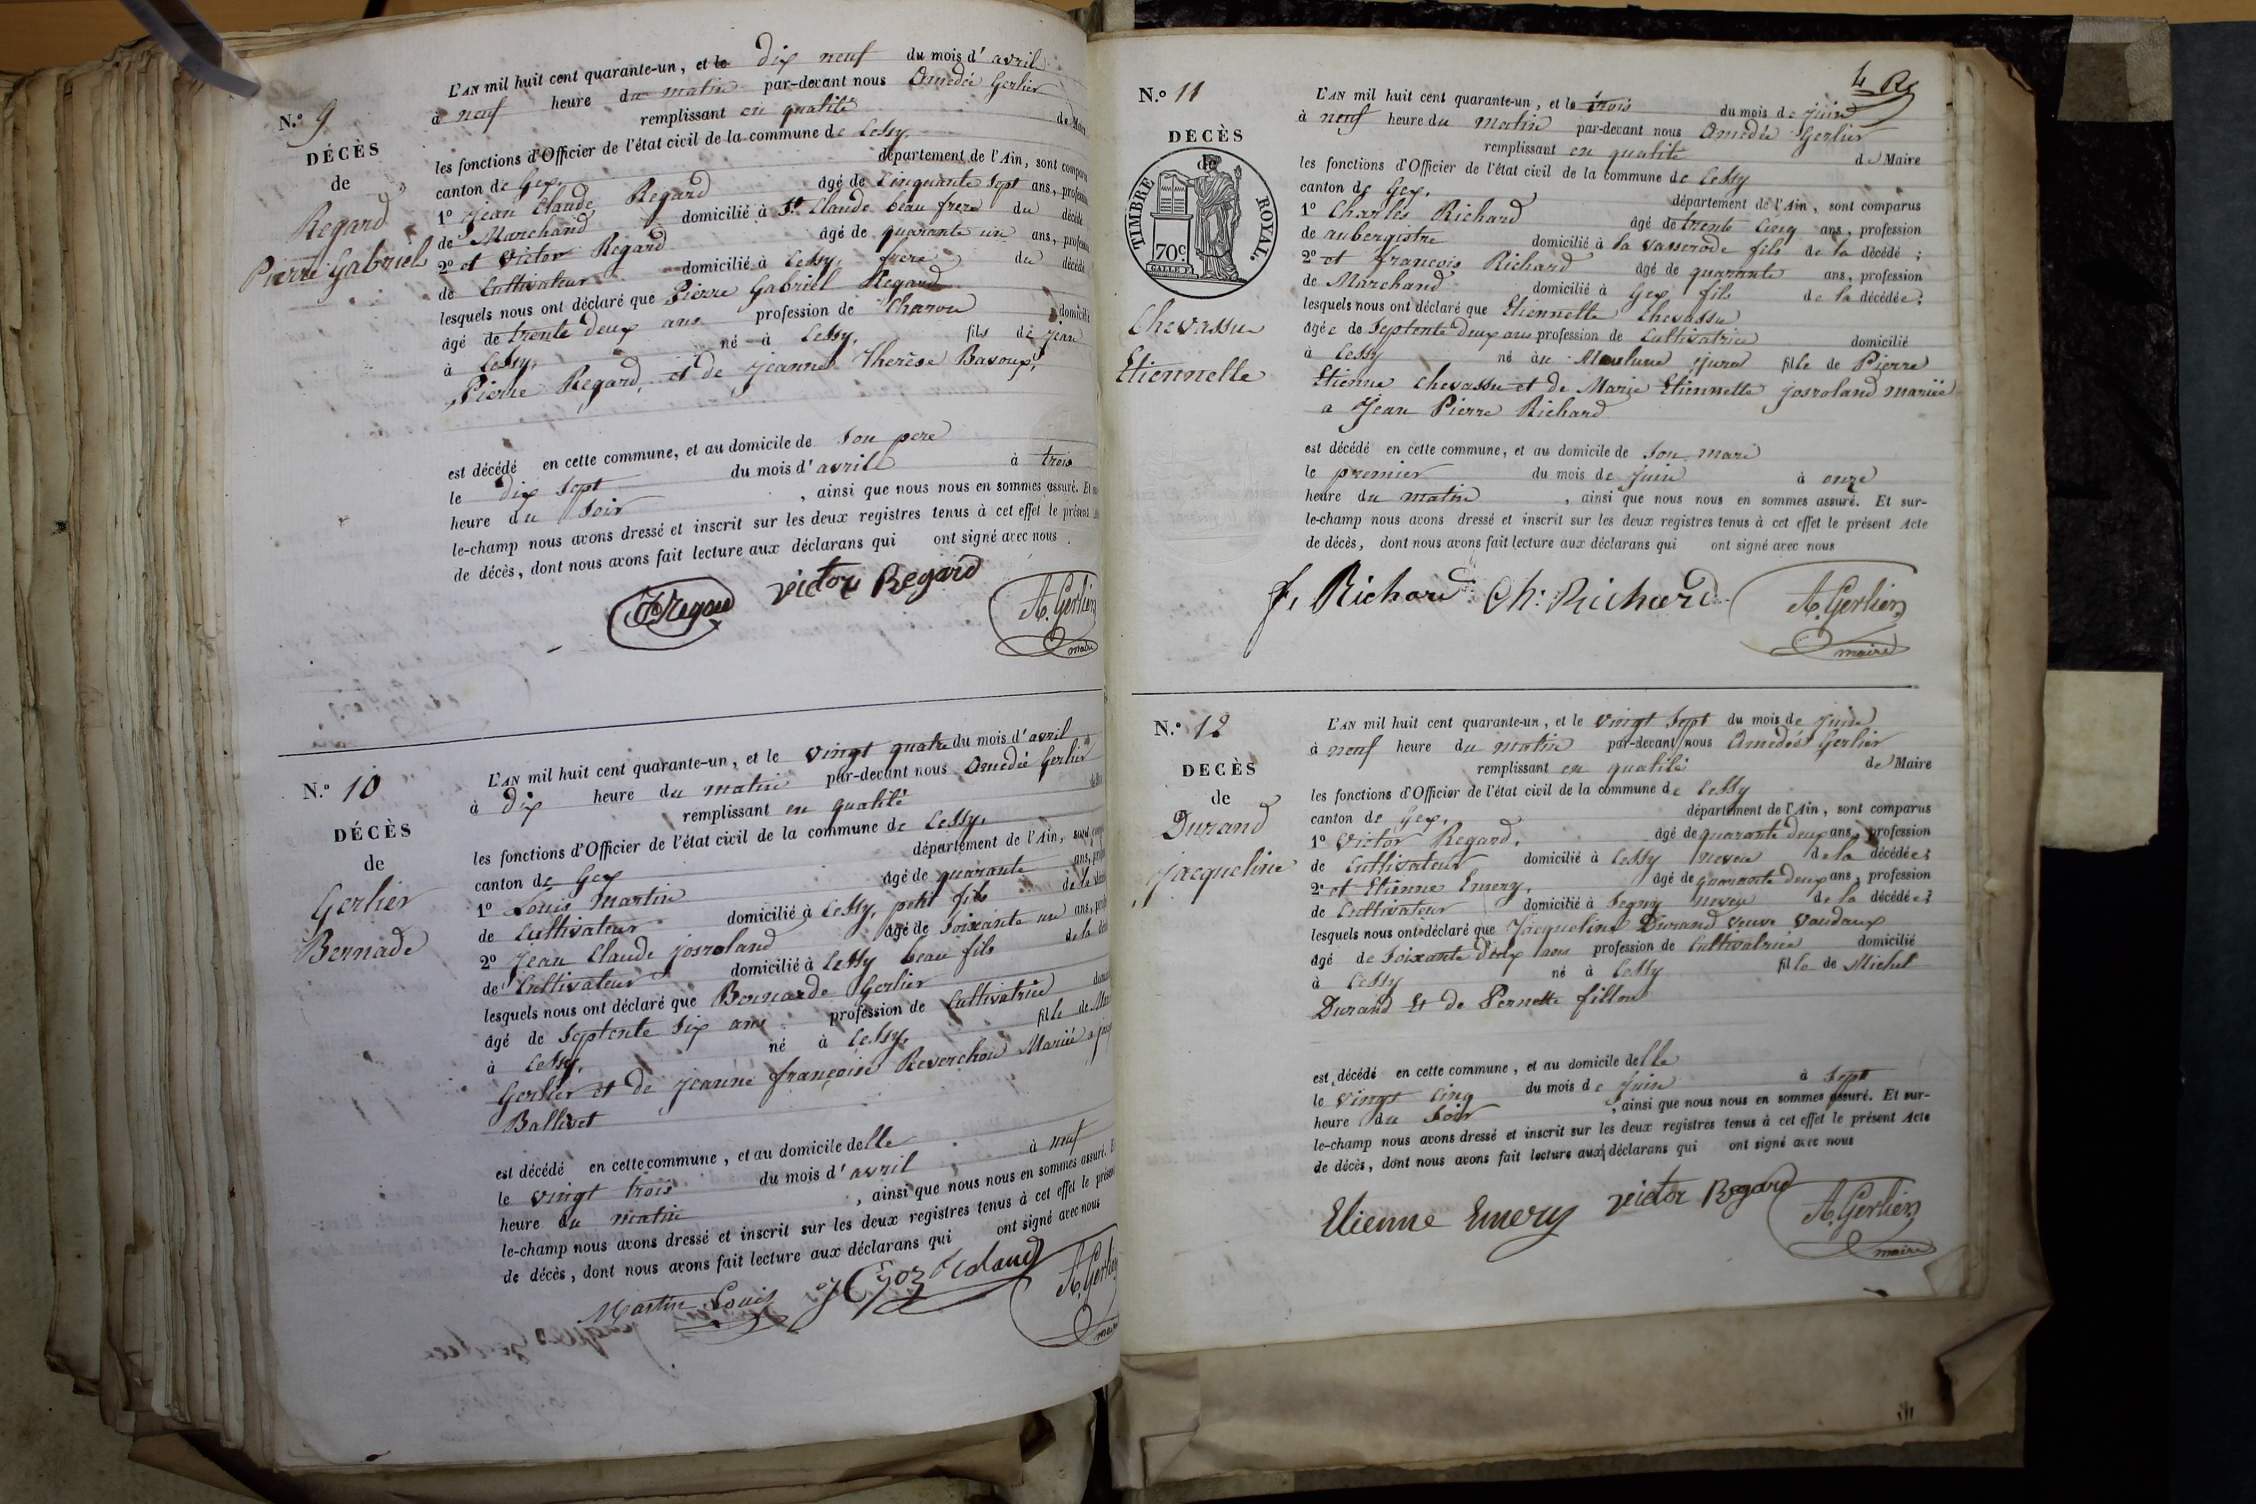 N.º 9
DÉCÈS
de
Regard
Pierre Gabriel
L'AN mil huit cent quarante-un, et le dix neuf du mois d'avril
à neuf heure du matin par-devant nous Amedée Gerlier
remplissant en qualité de Maire
les fonctions d'Officier de l'état civil de la commune de Cessy,
canton de Gex, département de l'Ain, sont comparus
1º Jean Claude Regard âgé de Cinquante sept ans, profession
de Marchand domicilié à St Claude beau frere du décédé
2º et Victor Regard âgé de quarante un ans, profession
de Cultivateur domicilié à Cessy, frere du décédé
lesquels nous ont déclaré que Pierre Gabriel Regard
âgé de trente deux ans profession de domicilié
à Cessy, né à Cessy, fils de Jean
Pierre Regard, et de Jeanne Therèse Bavoux,
est décédé en cette commune, et au domicile de son pere
le dix sept du mois d'avril à trois
heure du soir, ainsi que nous nous en sommes assuré. Et
le-champ nous avons dressé et inscrit sur les deux registres tenus à cet effet le présent
de décès, dont nous avons fait lecture aux déclarans qui ont signé avec nous.
Regard Victor Regard A. Gerlier
maire
N.º 10
DÉCÈS
de
Gerlier
Bernade
L'AN mil huit cent quarante-un, et le vingt quatre du mois d'avril
à dix heure du matin par-devant nous Amedée Gerlier
remplissant en qualité
les fonctions d'Officier de l'état civil de la commune de Cessy,
canton de Gex département de l'Ain, sont
1º Louis Martin âgé de quarante ans,
de Cultivateur domicilié à Cessy, petit fils de la
2º Jean Claude josroland âgé de soixante un ans,
de Cultivateur domicilié à Cessy beau fils de la
lesquels nous ont déclaré que Bernarde Gerlier
âgé de septente six ans profession de Cultivatrice
à Cessy, né à Cessy, fille de
Gerlier et de Jeanne françoise Reverchon Mariée a
Ballivet
est décédé en cette commune, et au domicile delle
le vingt trois du mois d'avril à neuf
heure du matin, ainsi que nous nous en sommes assuré.
le-champ nous avons dressé et inscrit sur les deux registres tenus à cet effet le présent
de décès, dont nous avons fait lecture aux déclarans qui ont signé avec nous
Martin Louis JC Joz Roland A. Gerlier
maire
4
N.º 11
DECÈS
de
TIMBRE ROYAL.
70c
Chevassu
Etiennette
L'AN mil huit cent quarante-un, et le trois du mois de juin
à neuf heure du matin par-devant nous Amedée Gerlier
remplissant en qualité de Maire
les fonctions d'Officier de l'état civil de la commune de Cessy
canton de Gex, département de l'Ain, sont comparus
1º Charles Richard âgé de trente cinq ans, profession
de aubergiste domicilié à la vasserode fils de la décédé;
2º et francois Richard âgé de quarante ans, profession
de Marchand domicilié à Gex fils de la décédée;
lesquels nous ont déclaré que Etiennette Chevassu
âgée de septente deux ans profession de Cultivatrice domicilié
à Cessy né au Moulune jura fille de Pierre
Etienne Chevassu et de Marie Etiennette josroland mariée
a Jean Pierre Richard
est décédé en cette commune, et au domicile de son mari
le premier du mois de juin à onze
heure du matin, ainsi que nous nous en sommes assuré. Et sur-
le-champ nous avons dressé et inscrit sur les deux registres tenus à cet effet le présent Acte
de décès, dont nous avons fait lecture aux déclarans qui ont signé avec nous
f. Richard Ch. Richard A. Gerlier
maire
N.º 12
DECÈS
de
Durand
Jacqueline
L'AN mil huit cent quarante-un, et le vingt sept du mois de juin
à neuf heure du matin par-devant nous Amedée Gerlier
remplissant en qualité de Maire
les fonctions d'Officier de l'état civil de la commune de Cessy
canton de Gex, département de l'Ain, sont comparus
1º Victor Regard, âgé de quarante deux ans, profession
de Cultivateur domicilié à Cessy neveu de la décédée;
2º et Etienne Emery, âgé de quarante deux ans, profession
de Cultivateur domicilié à Segny neveu de la décédée;
lesquels nous ont déclaré que Jacqueline Durand veuve Vaudaux
âgé de soixante dix ans profession de Cultivatrice domicilié
à Cessy né à Cessy fille de Michel
Durand Et de Pernette fillon
est décédé en cette commune, et au domicile delle
le vingt cinq du mois de juin à sept
heure du soir, ainsi que nous nous en sommes assuré. Et sur-
le-champ nous avons dressé et inscrit sur les deux registres tenus à cet effet le présent Acte
de décès, dont nous avons fait lecture aux déclarans qui ont signé avec nous
Etienne Emery Victor Regard A. Gerlier
maire